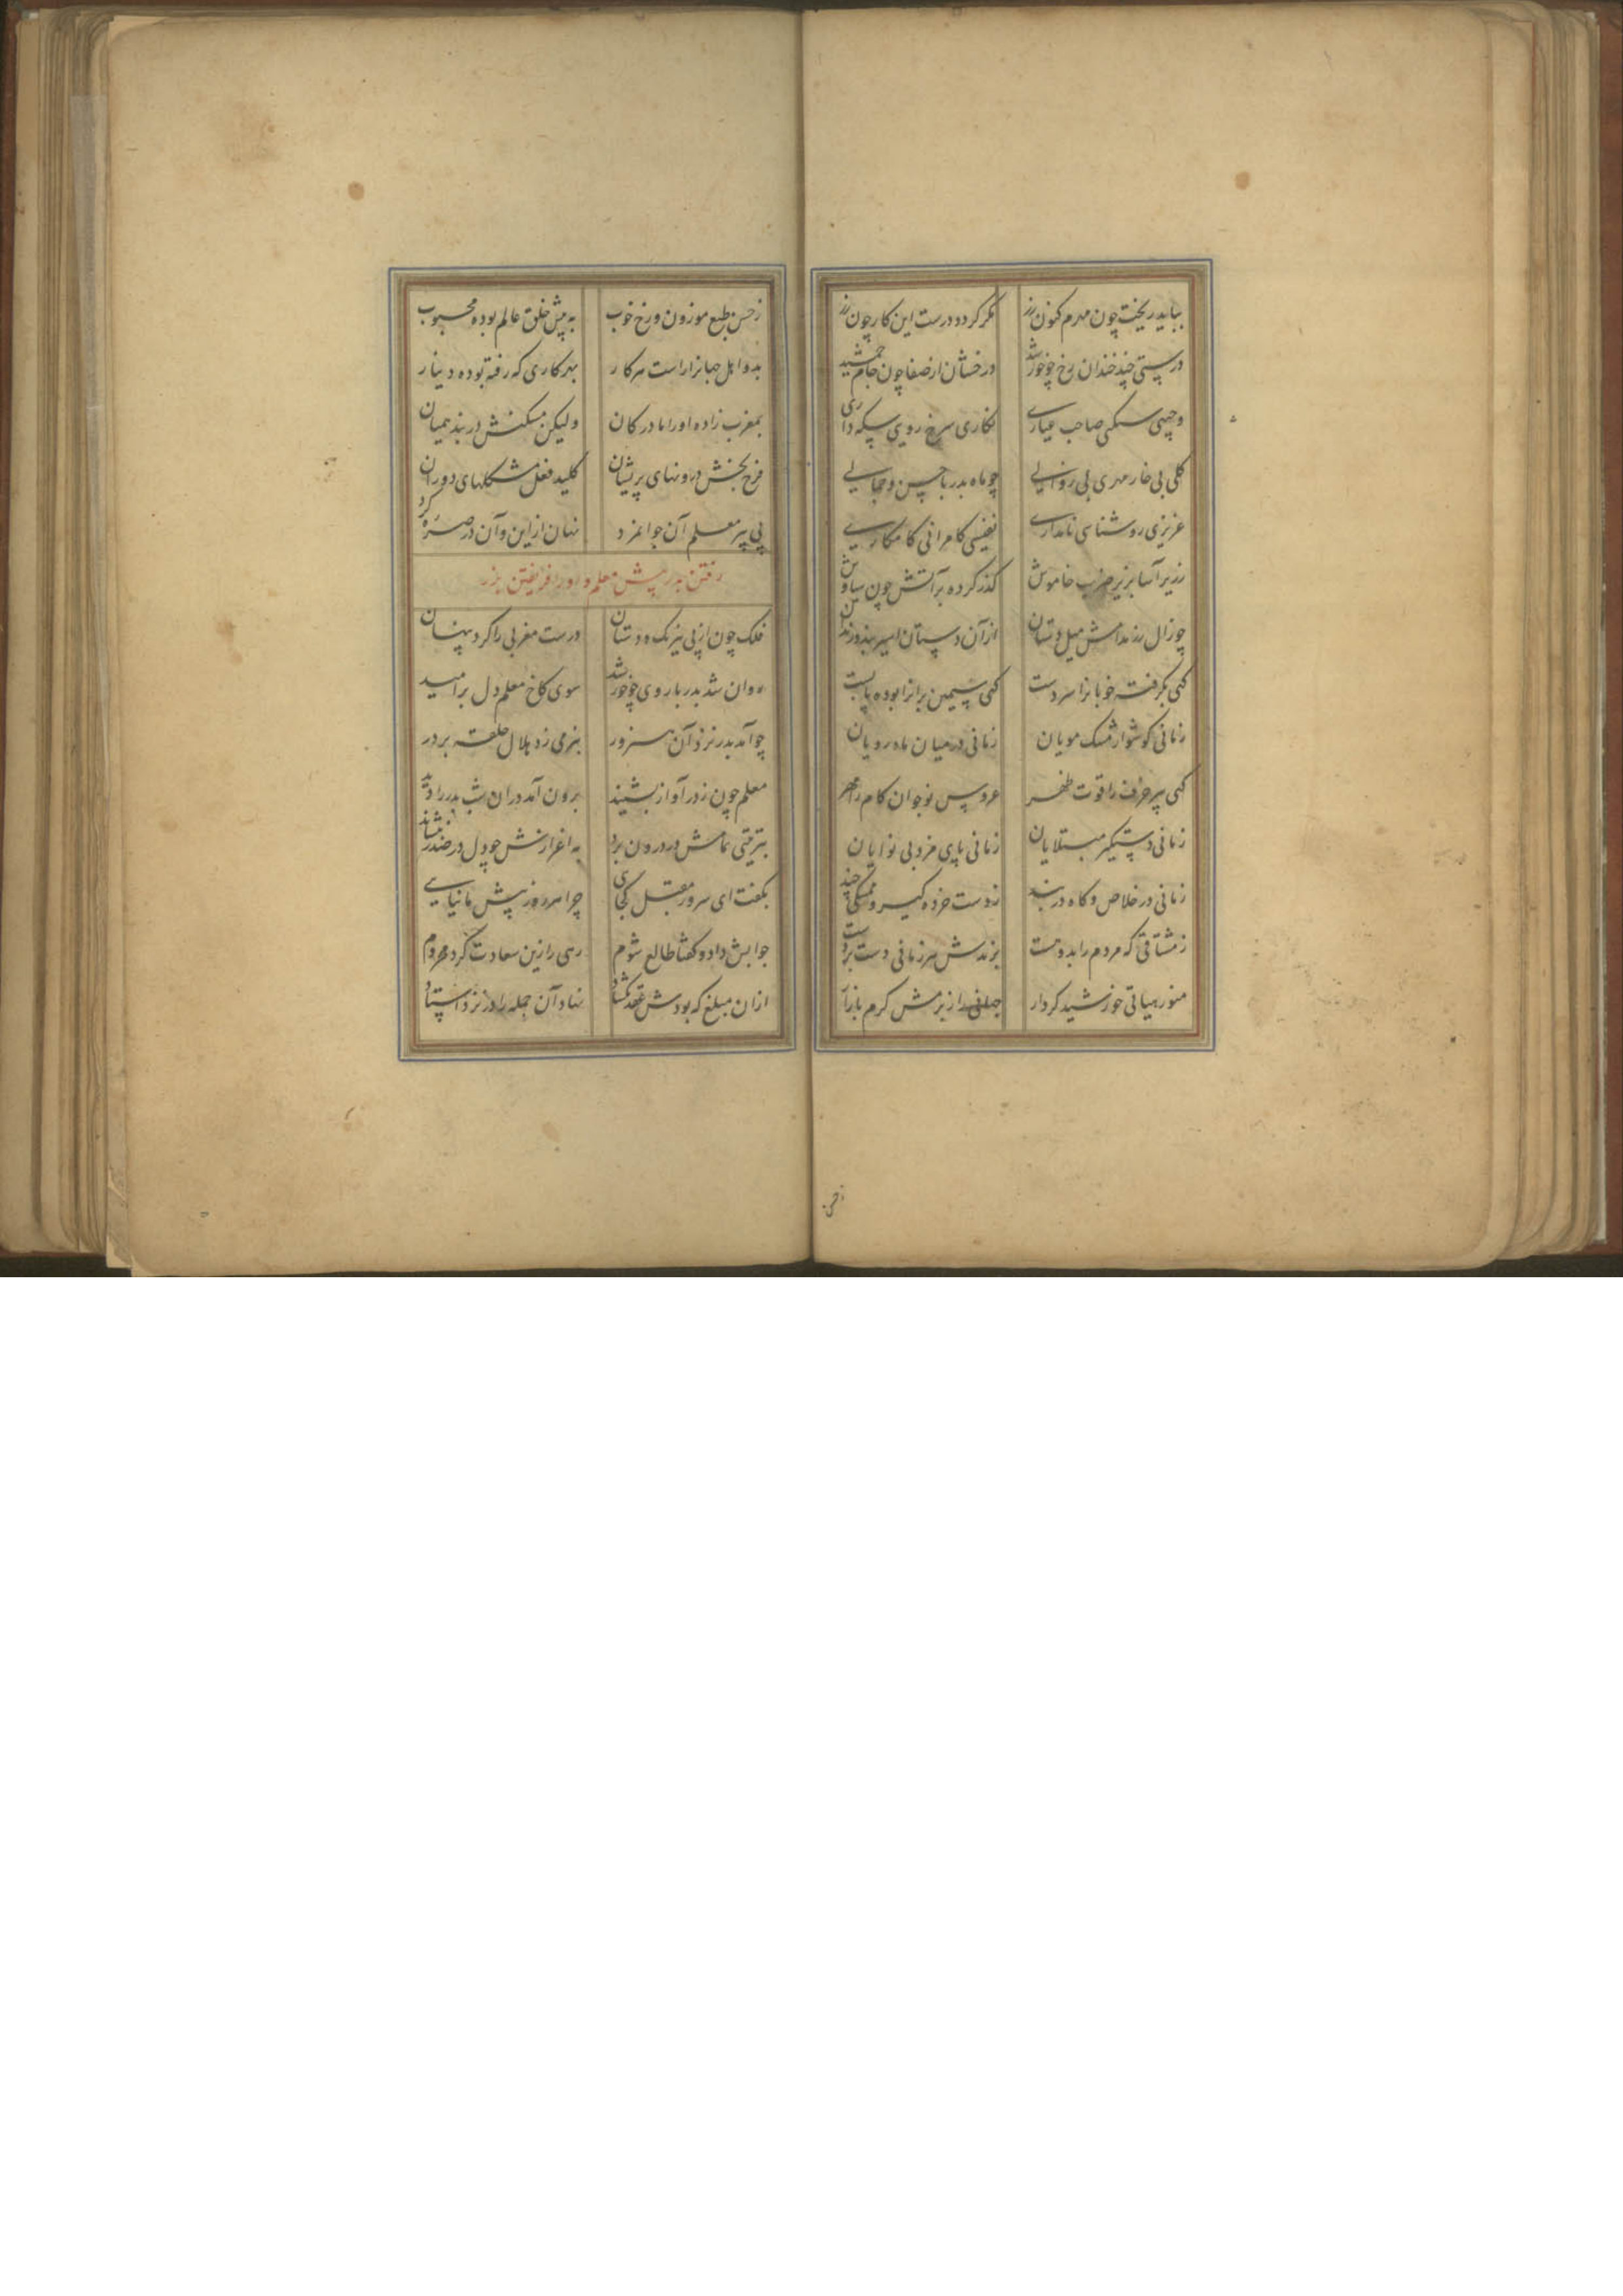 بباید ریخت چون مردم کنون زر مگر گردد درست این کار چون زر
درستی چند خندان رخ چو خورشید درخشان از صفا چون جام جمشید
وجهی سکه صاحب عیاری نگاری سرخ رویی سکه داری
گلی بی خار مهری بی زوالی چو ماه بدر با حسن و جمالی
عزیزی روشناسی نامداری نفیسی کامرانی کامکاری
زریر آسا بزیر ضرب خاموش گذر کرده بر آتش چون سیاوش
چو زال زر مدامش میل دستان از آن دستان اسیر بند
گهی بگرفته خوبانرا سر دست گهی سیمین برانرا بوده پابست
زمانی گوشوار مشک مویان زمانی در میان ماه رویان
گهی پیر خرف را قوت ظهر عروس نوجوان کام را مهر
زمانی دستگیر مبتلایان زمانی پای مزد بی نوایان
زمانی در خلاص و گاه در بند ز دست خرده گیر و ممسکی چند
ز مشتاقی که مردم را بدو هست برندش هر زمانی دست بر دست
منور هیاتی خورشید کردار جهانی از زرمش گرم بازار
ز حسن طبع موزون و رخ خوب به پیش خلق عالم بوده محبوب
بدو اهل جهانرا راست هر کار بهر کاری که رفته بوده دینار
بمغرب زاده او را مادر کان ولیکن مسکنش در بند همیان
فرح بخش درونهای پریشان کلید قفل مشکلهای دوران
پی پیر معلم آن جوانمرد نهان از این و آن در صره کرد
رفتن بدر پیش معلم و او را فریفتن بزر
فلک چون از پی نیرنگ و دستان درست مغربی را کرد پنهان
روان شد بدر با روی چو خورشید سوی کاخ معلم دل بر امید
چو آمد بدر نزد آن هنرور بنرمی زد هلال حلقه بر در
معلم چون ز در آواز بشنید برون آمد در آن شب بدر را دید
بترتیبی تمامش در درون برد به اعزازش چو دل در صدر بنشاند
بگفت ای سرور مقبل کجایی چرا هر روز پیش ما نیایی
جوابش داد و گفتا طالع شوم رهی را زین سعادت کرد محروم
از آن مبلغ که بودش عقد بگشاد نهاد آن جمله را در نزد استاد